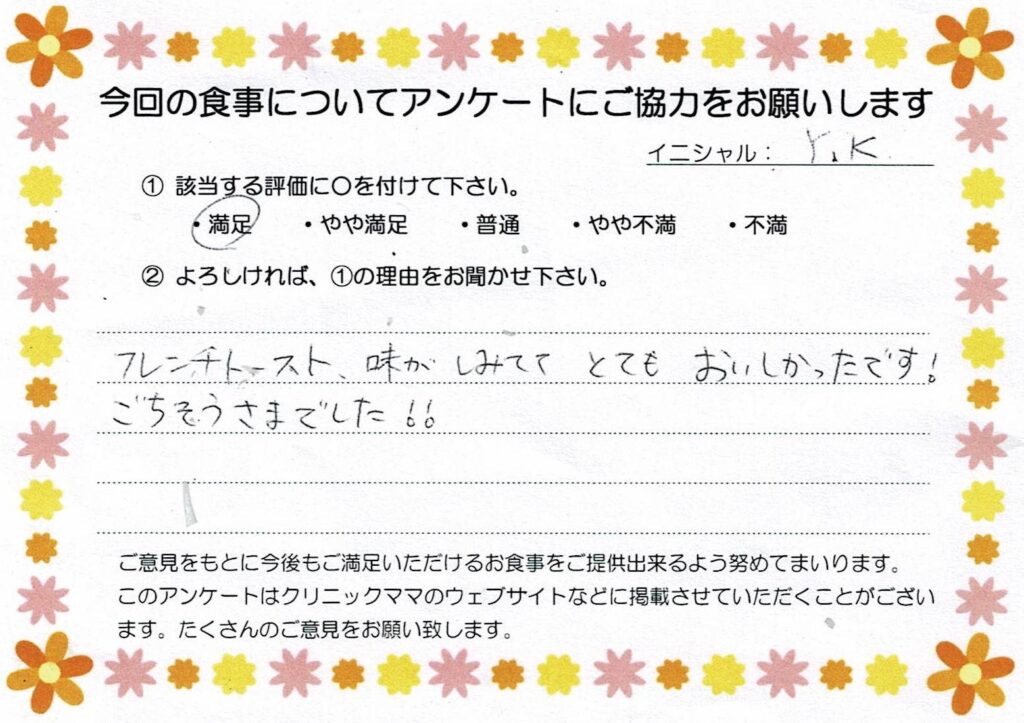 今回の食事についてアンケートにご協力をお願いします
イニシャル： Y.K
① 該当する評価に〇を付けて下さい。
・満足 ・やや満足 ・普通 ・やや不満 ・不満
② よろしければ、①の理由をお聞かせ下さい。
フレンチトースト、味がしみてて とても おいしかったです！
ごちそうさまでした！！
ご意見をもとに今後もご満足いただけるお食事をご提供出来るよう努めてまいります。
このアンケートはクリニックママのウェブサイトなどに掲載させていただくことがござい
ます。たくさんのご意見をお願い致します。